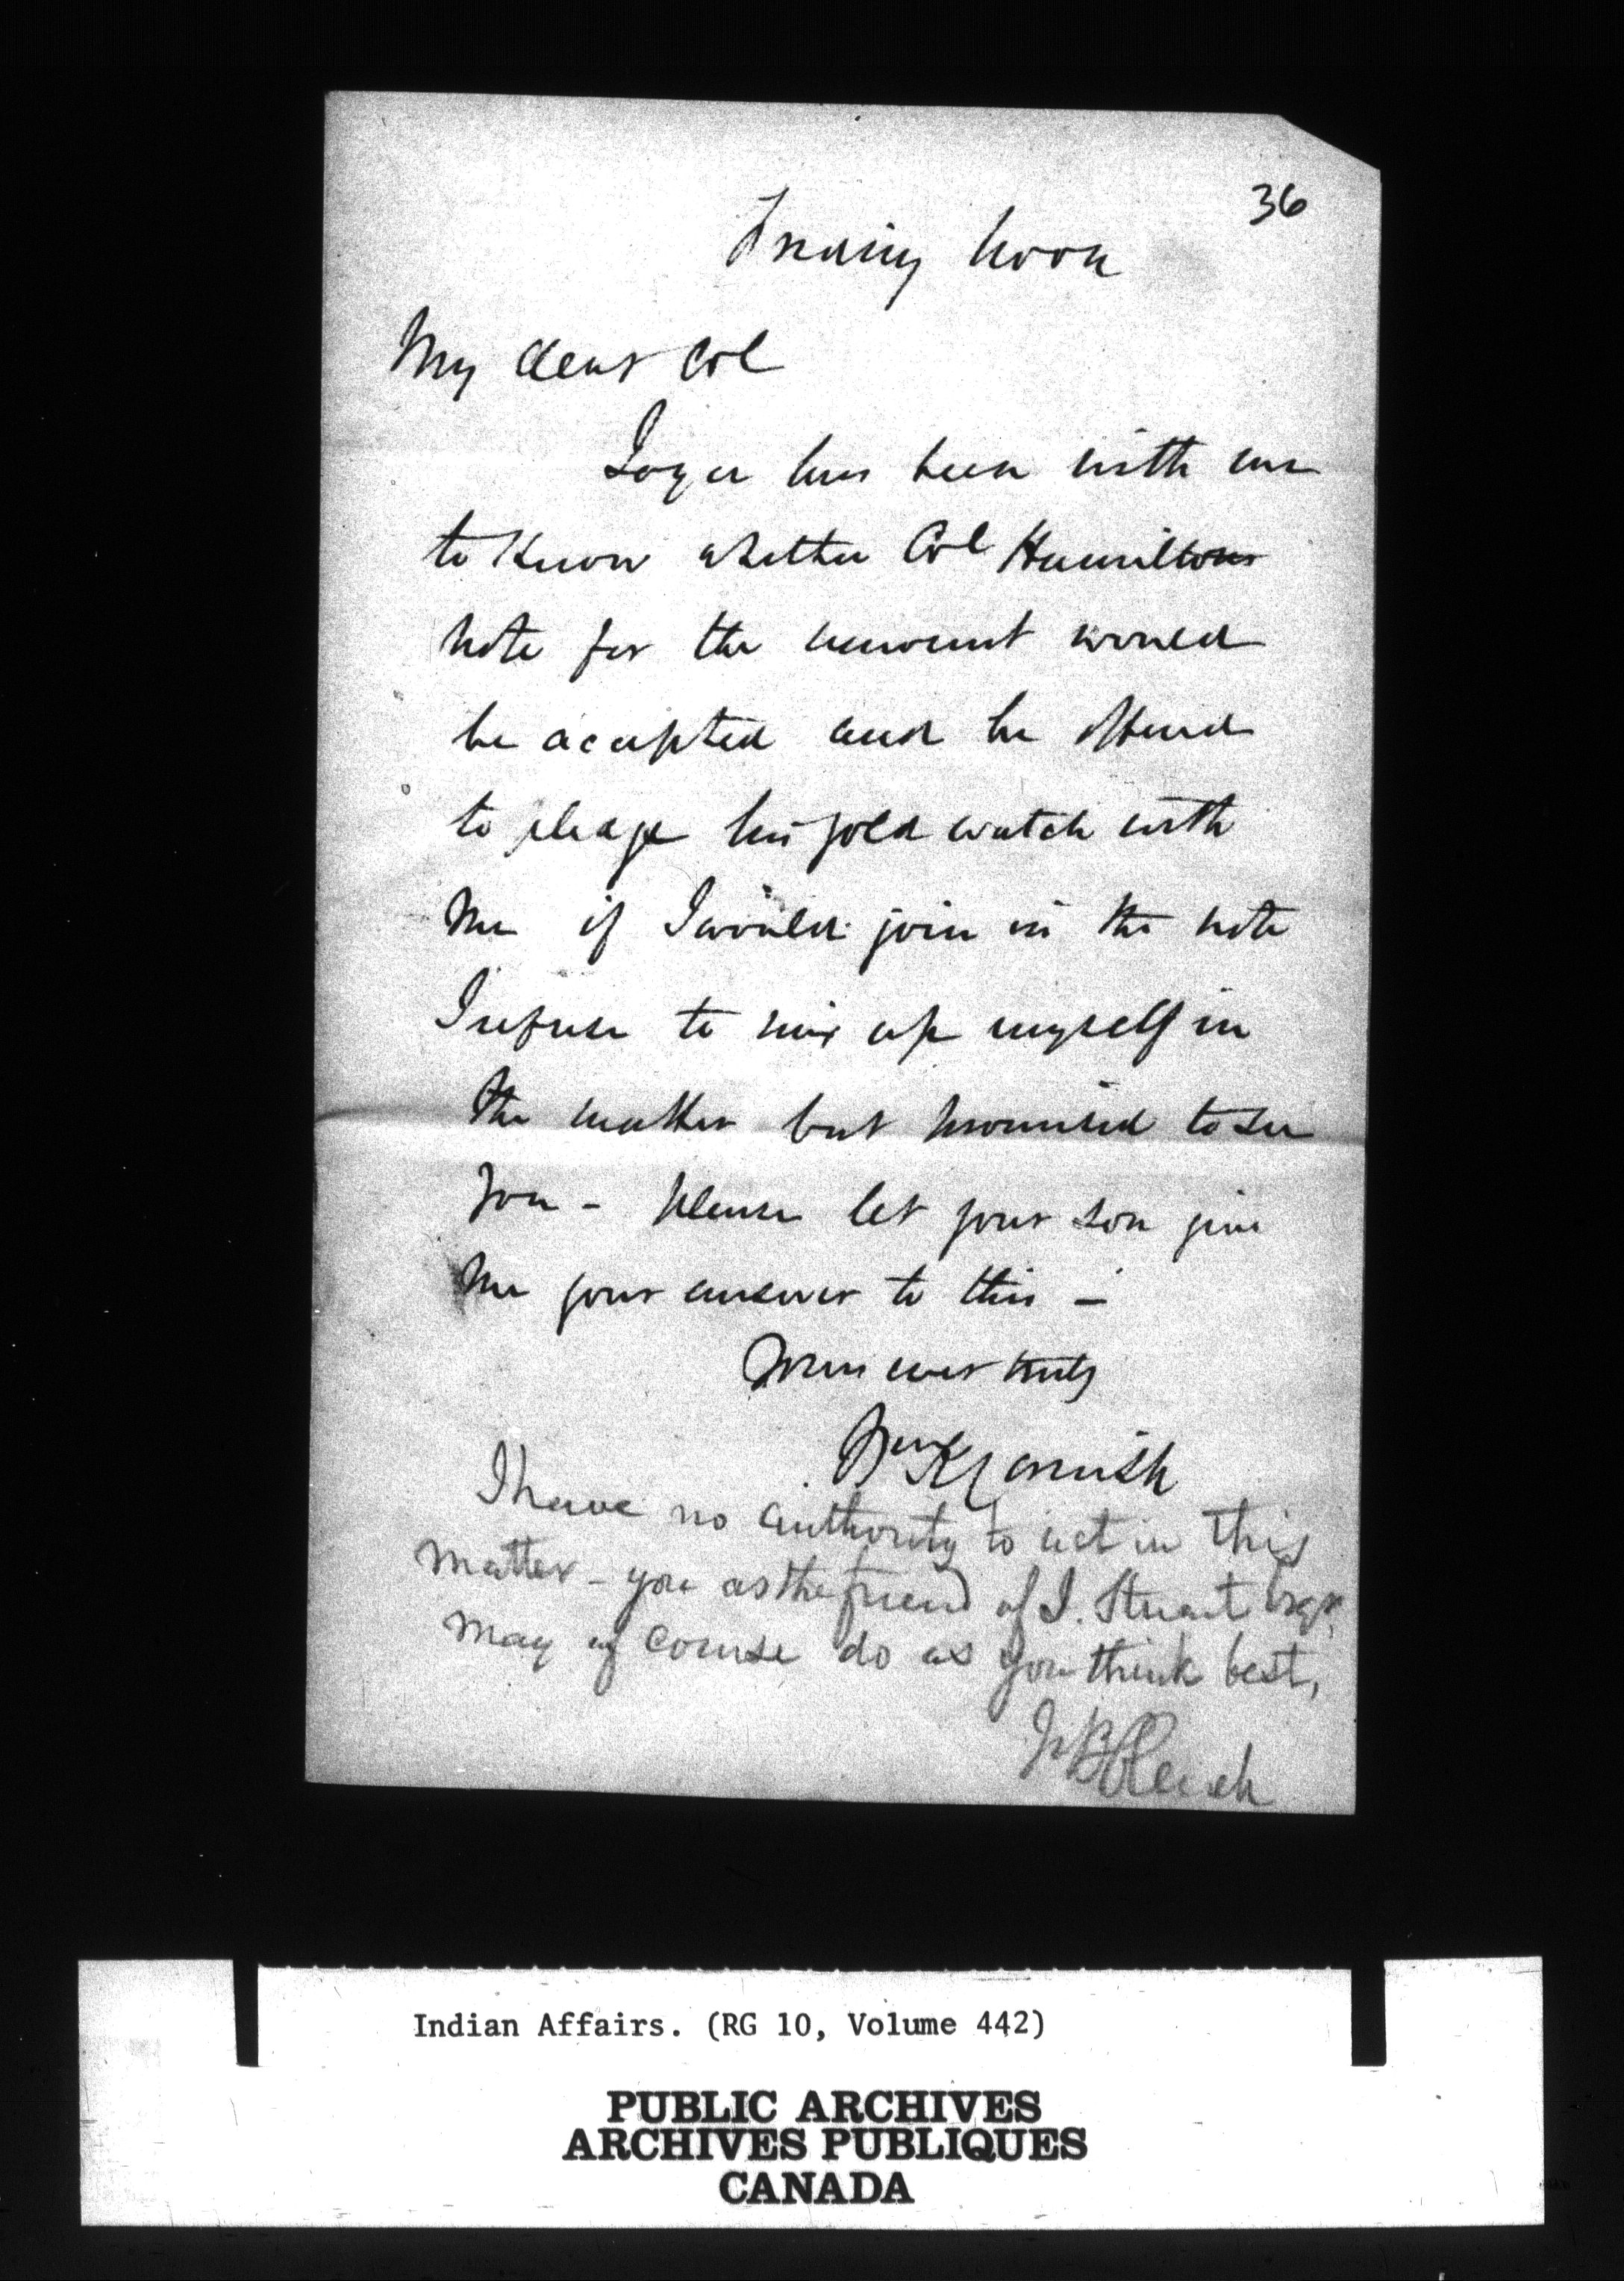 36
noon
My dear Col
has been with me
to Know whether Col Hamiltons
note for the amount would
be accepted and he offered
to pledge his gold watch with
me if I would join in the note
I refuse to mix up myself in
the matter but promised to see
you - please let your son give
me your answer to this -
Yours ever truly
Wm K Cornish
I have no authority to act in this
matter - you as the friend of I. Stuart Esqr
may of course do as you think best,
JB Clench
Indian Affairs. (RG 10, Volume 442)
PUBLIC ARCHIVES
ARCHIVES PUBLIQUES
CANADA